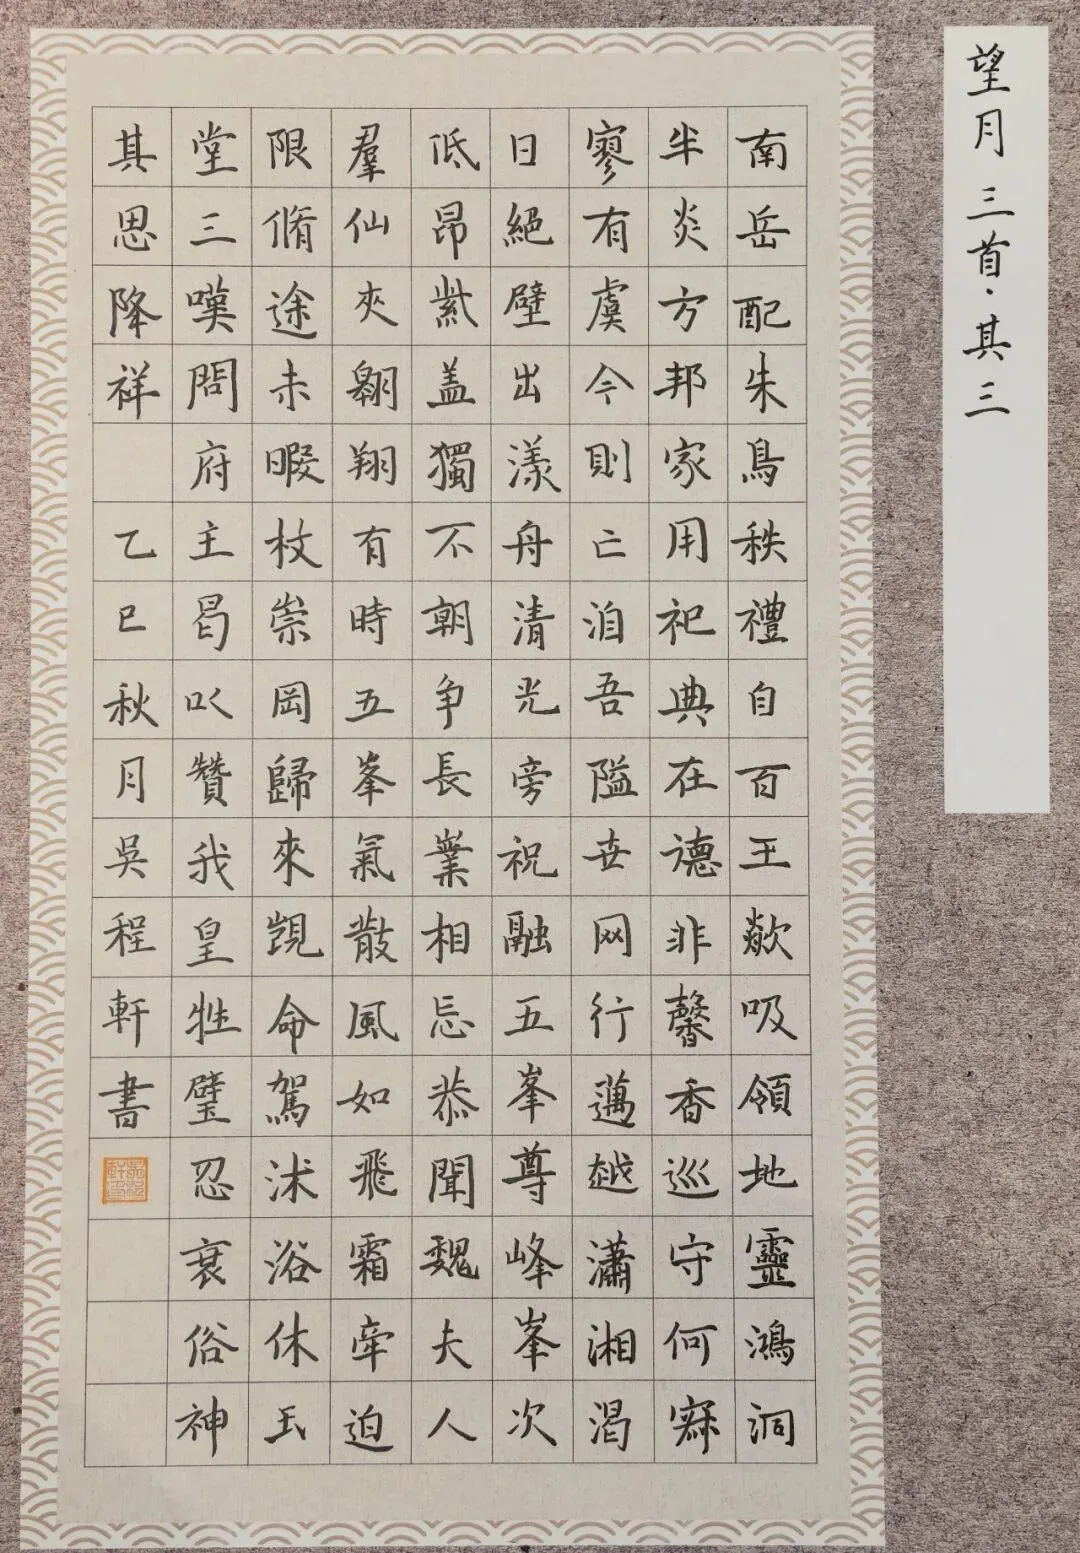 望月三首·其三
南岳配朱鳥秩禮自百王欻吸領地靈鴻洞
半炎方邦家用祀典在德非馨香巡守何寂
寥有虞今則亡洎吾隘世网行邁越瀟湘渴
日絕壁出漾舟清光旁祝融五峯尊峰峯次
低昂紫盖獨不朝争長嶪相忘恭聞魏夫人
羣仙夾翱翔有時五峯氣散風如飛霜牽迫
限脩途未暇杖崇岡歸來覬命駕沐浴休玉
堂三嘆問府主曷以贊我皇牲璧忍衰俗神
其思降祥 乙巳秋月吳程軒書